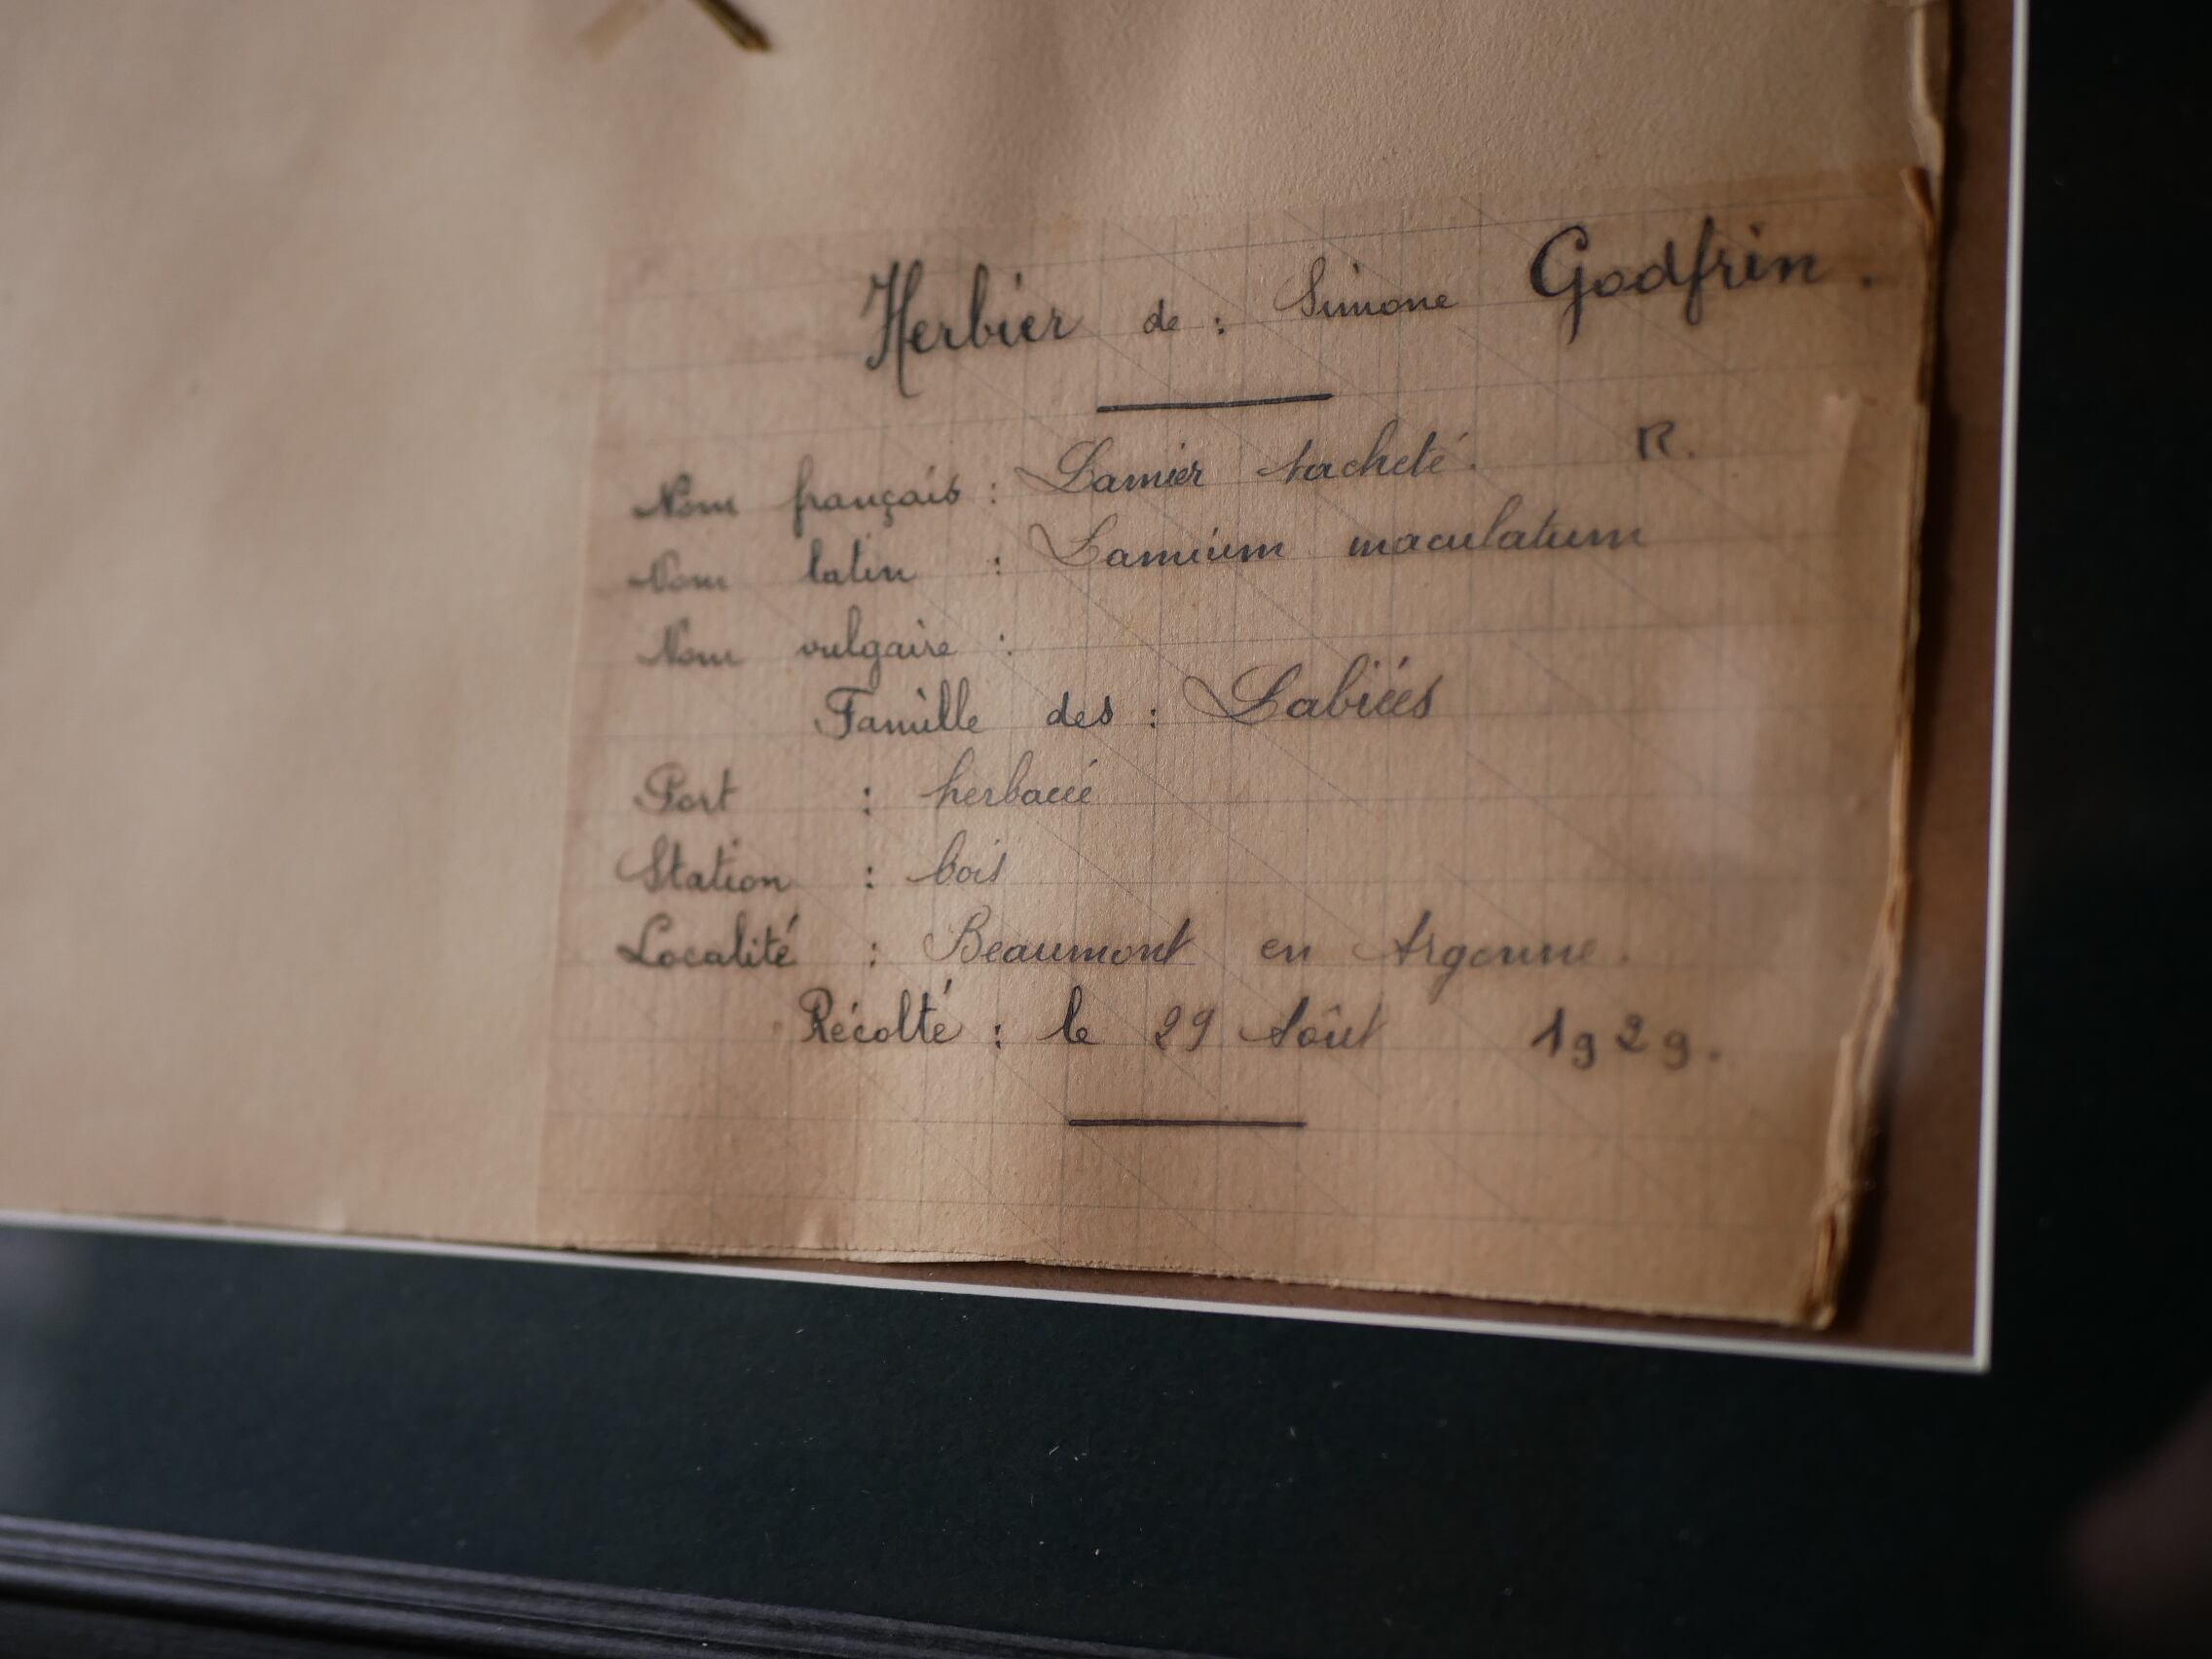 Herbier de : Simone Godfrin.
Nom français : Lamier tacheté. R.
Nom latin : Lamium maculatum
Nom vulgaire :
Famille des : Labiées
Port : herbacé
Station : bois
Localité : Beaumont en Argonne.
Récolté : le 29 Aôut 1929.